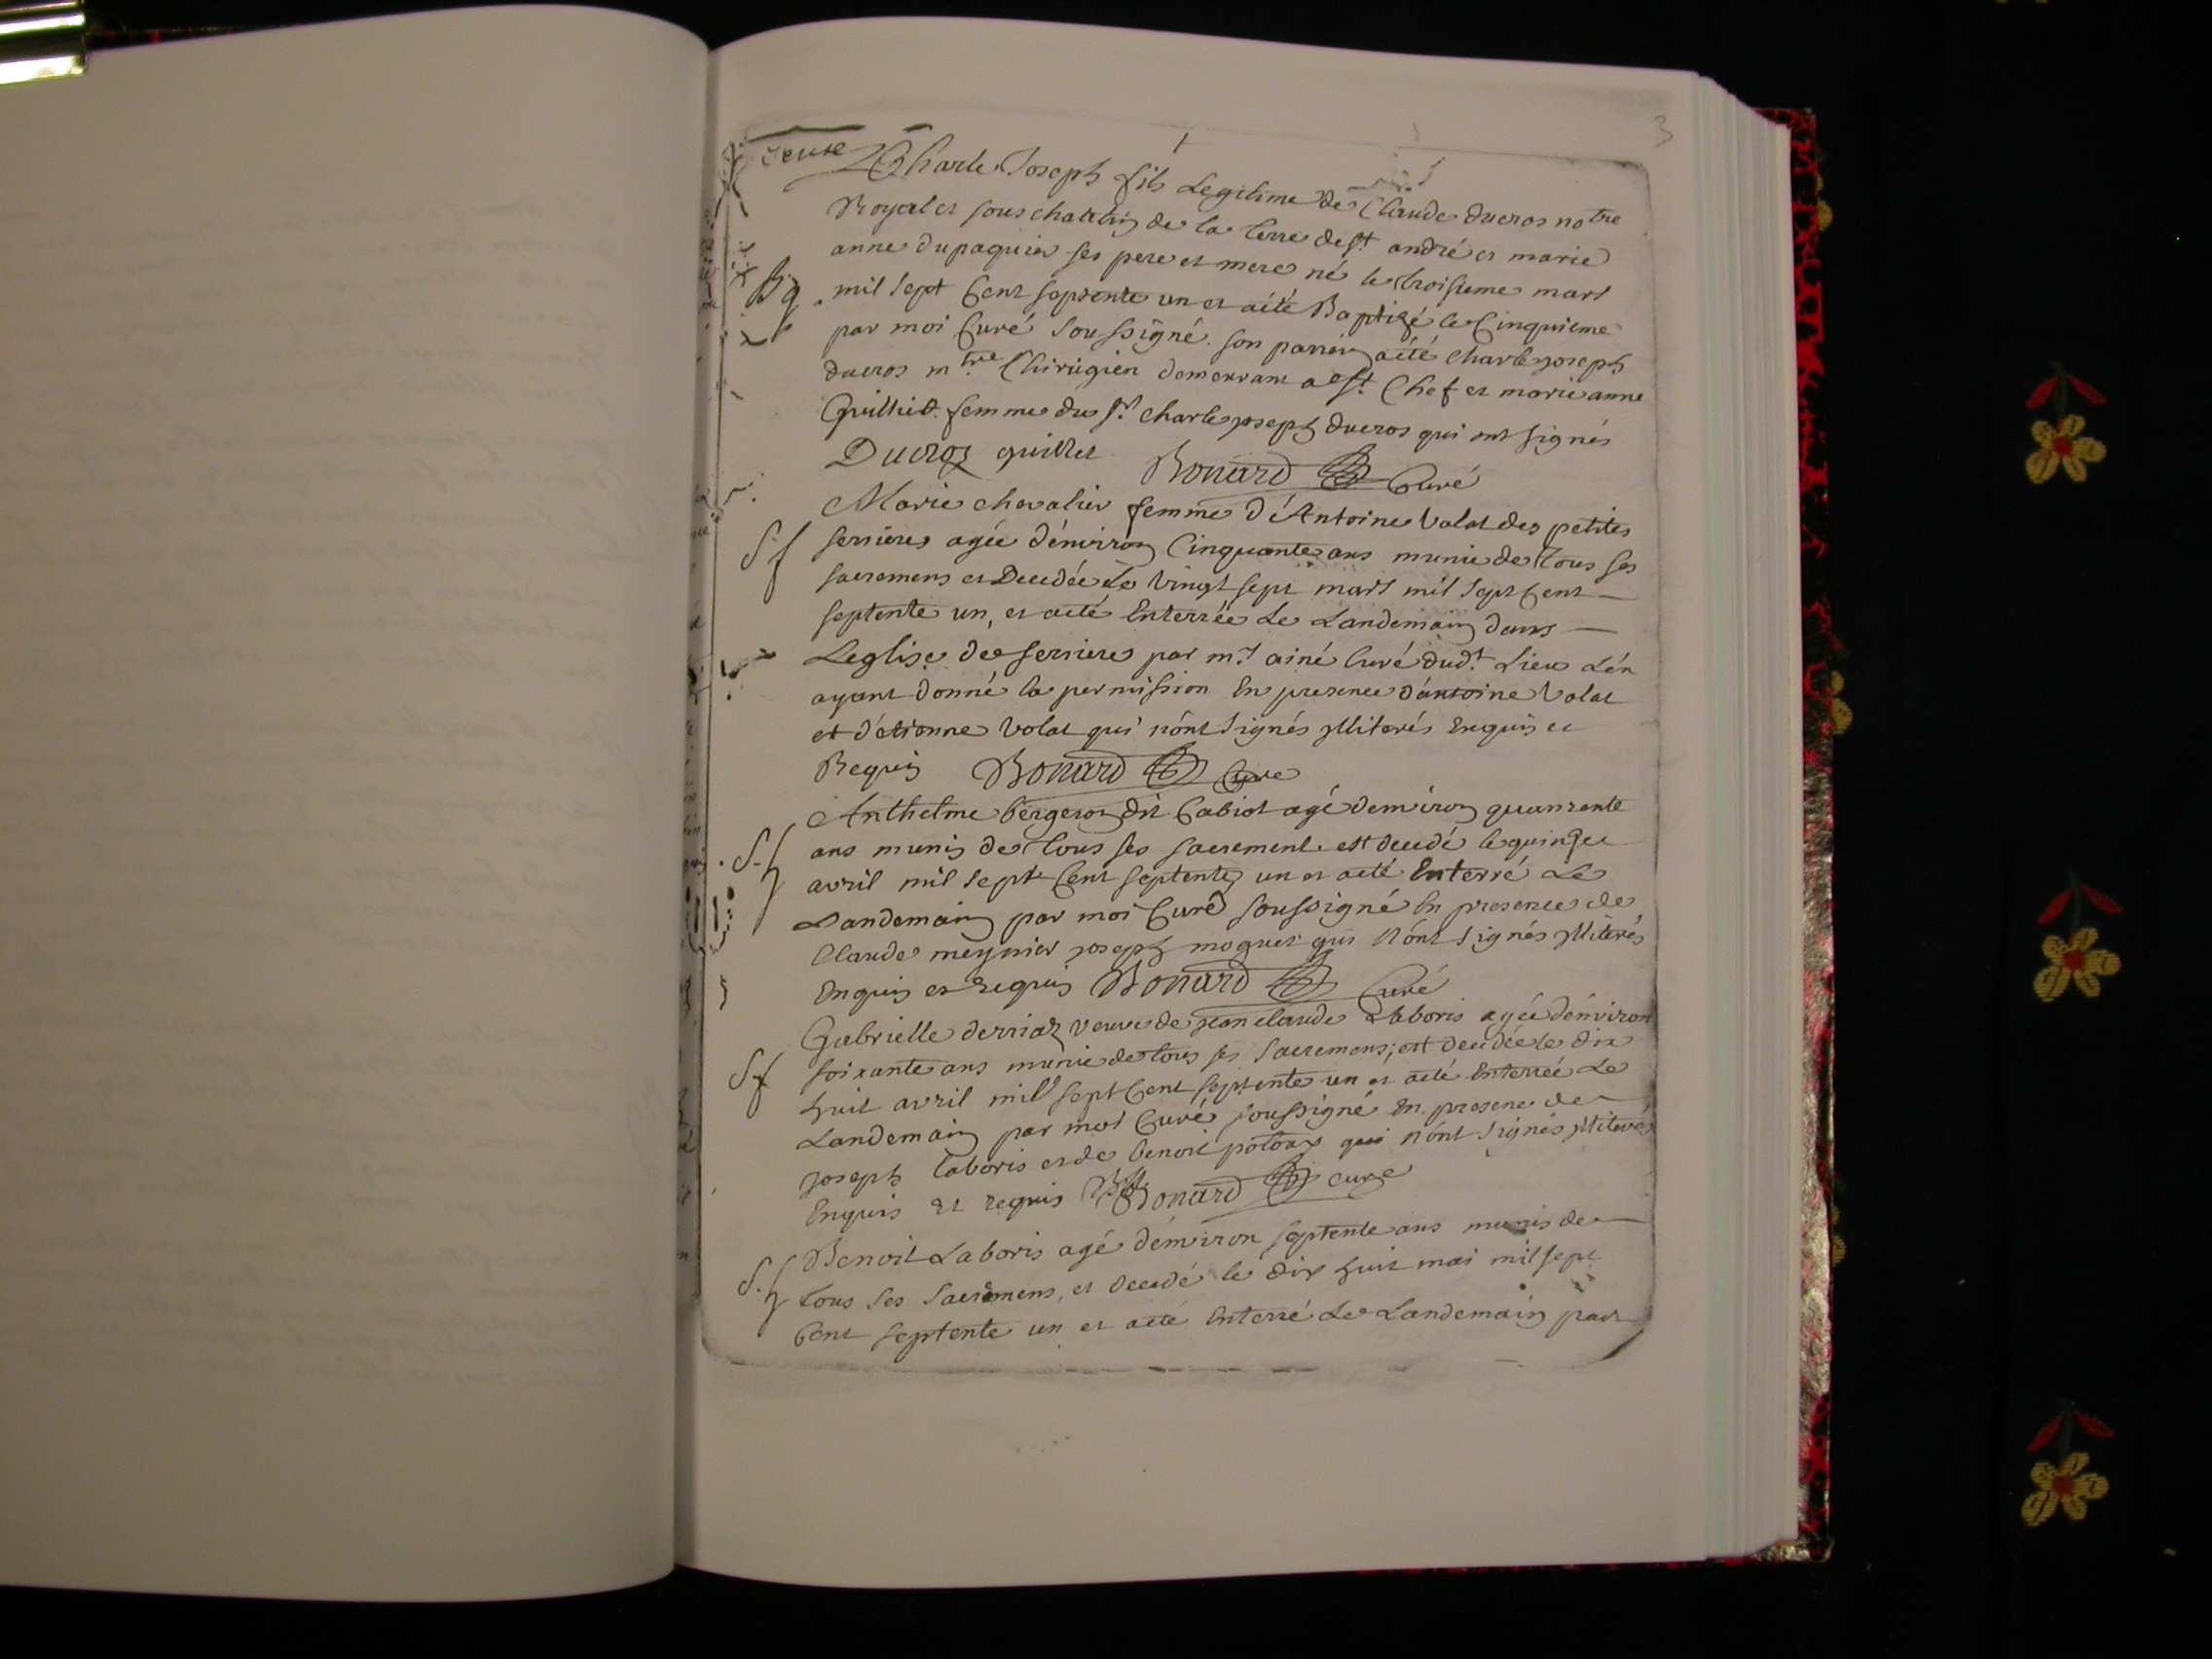 3
Charle Joseph fils Legitime de Claude ducros notre
Royal et sous chatelin de la terre de st andré et marie
anne dupaquier ses pere et mere né le troisieme mars
Bg mil sept Cent septente un et aété Baptizé le Cinquieme
par moi Curé soussigné. son parrein aété charle joseph
ducros mtre Chirugien demeurant a st Chef et marie anne
Guillet femme du sr charle joseph ducros qui ont signés
Ducroz guillet Bonard Curé
Marie chevalier femme d'Antoine Volat des petites
Sf serrieres agée dénviron Cinquante ans munie de tous ses
sacremens et Decedée Le vingt sept mars mil sept Cent
septente un, et aété Enterrée Le Landemain dans
Leglise de serrieres par mr ainé Curé dudt Lieu L'én
ayant donné la permission En presence d'antoine Volat
et d'étienne Volat qui nónt signés jlliterés Enquis et
Requis Bonard Cure
Anthelme bergeron dit Cabiot agé denviron quanrente
S.h ans munis de tous ses sacrement. est decedé le quinze
avril mil sept Cent septente un et aété Enterré Le
Landemain par moi Curé soussigné En presence de
Claude meynier joseph moguet qui Nónt signés jlliterés
Enquis et requis Bonard Curé
Gabrielle derriaz veuve de jean claude Laboris agée dénviron
Sf soixante ans munie de tous ses sacremens, est decedée le dix
huit avril mil sept Cent septente un et aété Enterrée Le
Landemain par moi Curé soussigné En presence de
joseph laboris et de benoit qui nónt signés jlliterés
Enquis et requis Bonard cure
Benoit Laboris agé dénviron septente ans munis de
S.h tous ses sacremens, et decedé le dix huit mai mil sept
Cent septente un et aété Enterré Le Landemain par